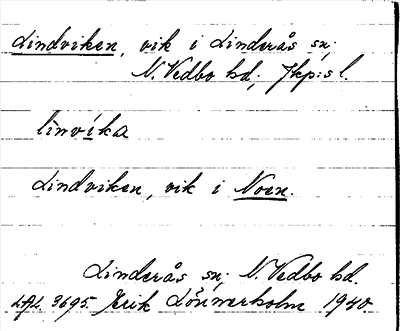 Lindviken, vik i Linderås sn;
N. Vedbo hd; Jkp:s l.
linvika
Lindviken, vik i Noen.
Linderås sn; N. Vedbo hd.
3695 Erik Lönnerholm 1940